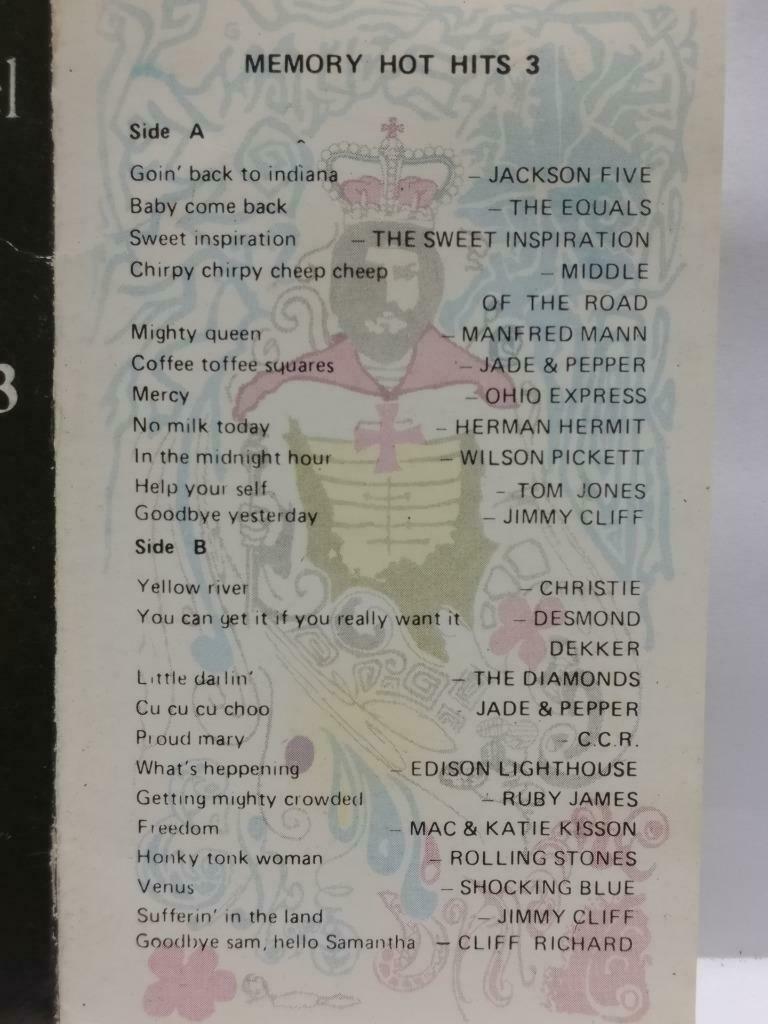 l
3
MEMORY HOT HITS 3
Side A
Goin' back to indiana – JACKSON FIVE
Baby come back – THE EQUALS
Sweet inspiration – THE SWEET INSPIRATION
Chirpy chirpy cheep cheep – MIDDLE
OF THE ROAD
Mighty queen – MANFRED MANN
Coffee toffee squares – JADE & PEPPER
Mercy – OHIO EXPRESS
No milk today – HERMAN HERMIT
In the midnight hour – WILSON PICKETT
Help your self – TOM JONES
Goodbye yesterday – JIMMY CLIFF
Side B
Yellow river – CHRISTIE
You can get it if you really want it – DESMOND
DEKKER
Little darlin' – THE DIAMONDS
Cu cu cu choo JADE & PEPPER
Proud mary – C.C.R.
What's heppening – EDISON LIGHTHOUSE
Getting mighty crowded – RUBY JAMES
Freedom – MAC & KATIE KISSON
Honky tonk woman – ROLLING STONES
Venus – SHOCKING BLUE
Sufferin' in the land – JIMMY CLIFF
Goodbye sam, hello Samantha – CLIFF RICHARD